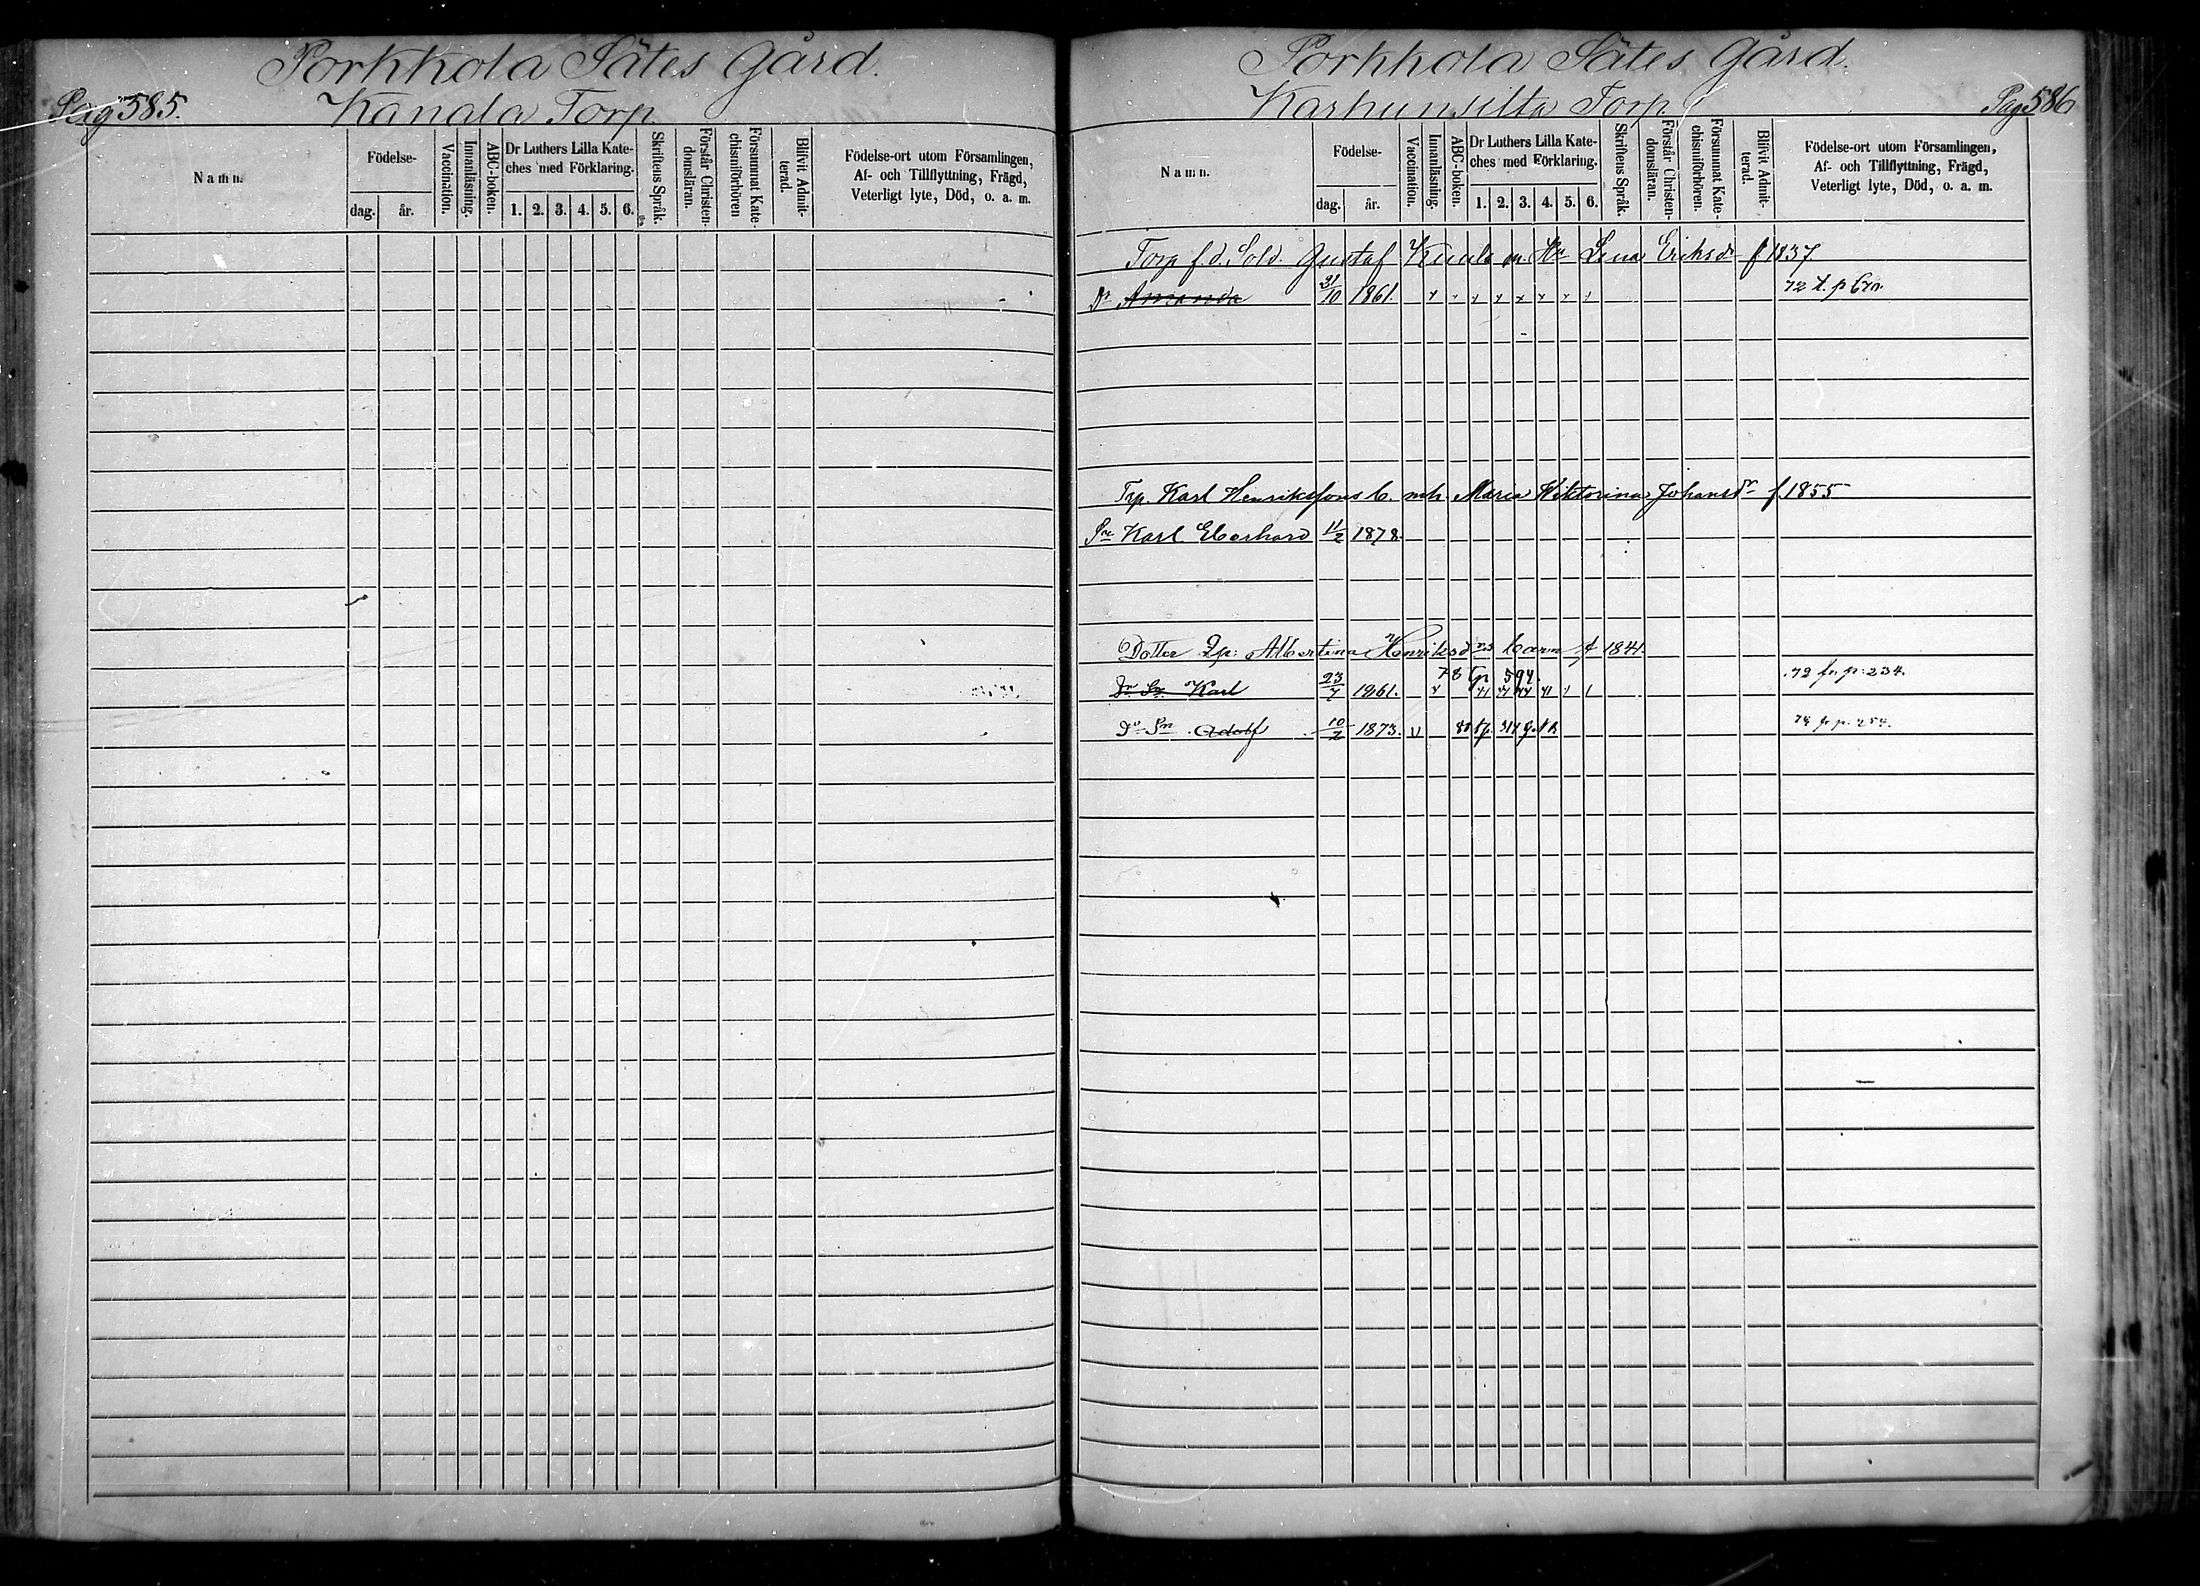 Porkkola Sätes Gård.
Pag 585. Kanala Torp
Namn. Födelse- dag. år. Vaccination. Innanläsning. ABC-boken. Dr Luthers Lilla Kateches med Förklaring. 1. 2. 3. 4. 5. 6. Skriftens Språk. Förstår Christendomsläran. Försummat Katechismiförhören Blifvit Admitterad. Födelse-ort utom Församlingen, Af- och Tillflyttning, Frägd, Veterligt lyte, Död, o. a. m.
Porkkola Sätes Gård.
Karhunsilta Torp. Pag 586
Namn. Födelse- dag. år. Vaccination. Innanläsning. ABC-boken. Dr Luthers Lilla Kateches med Förklaring. 1. 2. 3. 4. 5. 6. Skriftens Språk. Förstår Christendomsläran. Försummat Katechismiförhören. Blifvit Admitterad. Födelse-ort utom Församlingen, Af- och Tillflyttning, Frägd, Veterligt lyte, Död, o. a. m.
Torp f.d. Sold. Gustaf m Hu Lena Eriksdr f 1837.
Dr Amanda 31/10 1861. 72 t. p
Trp. Karl Henrikssons b. mh. Maria Wiktorina Johansdr f 1855
Sn Karl Eberhard 11/2 1878.
Dotter Ip: Albertina Henriksdrs barn f 1841.
78 tp 594.
Dr Sn Karl 23/7 1861. 72 fr. p: 234.
Dr Sn Adolf 10/2 1873. 80 tp. 314 78 fr p. 254.